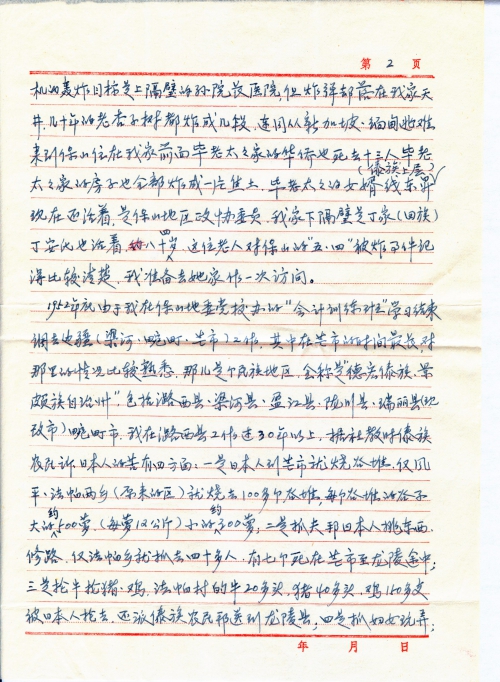 第 2 页
机的轰炸目标是上隔壁的孙院长医院,但炸弹却落在我家天
井,几十年的老杏子树都炸成几段,连同从新加坡、缅甸逃难
来到保山住在我家前面毕老太太家的华侨也死去十三人,毕老
太太家的房子也全部炸成一片焦土,毕老太太的女婿线东
(傣族上层)
现在还活着,是保山地区政协委员,我家下隔壁是丁家(回族)
丁安 也活着,八十四岁,这位老人对保山的“五·四”被炸事件记
得比较清楚,我准备去她家作一次访问。
1952年底由于我在保山地委党校办的“会计训练班”学习结束
调去边疆(梁河·畹町·芒市)工作,其中在芒市的时间最长,对
那里的情况比较熟悉,那儿是个民族地区,全称是“德宏傣族景
颇族自治州”,包括潞西县·梁河县·盈江县·陇川县·瑞丽县(现
改市)畹町市,我在潞西县工作达30年以上,据社教时傣族
农民诉日本人的苦有四方面:一是日本人到芒市就烧谷堆,仅风
平·法帕两乡(原来的区)就烧去100多个谷堆,每个谷堆的谷子
大的约500箩,(每箩 公斤)小的约300箩;二是抓夫帮日本人挑东西、
修路,仅法帕乡就抓去四十多人,有七个死在芒市至龙陵途中;
三是抢牛抢猪、鸡,法帕村的牛20多头,猪40多头,鸡150多支
被日本人抢去,还派傣族农民帮送到龙陵县;四是抓妇女玩弄;
年 月 日